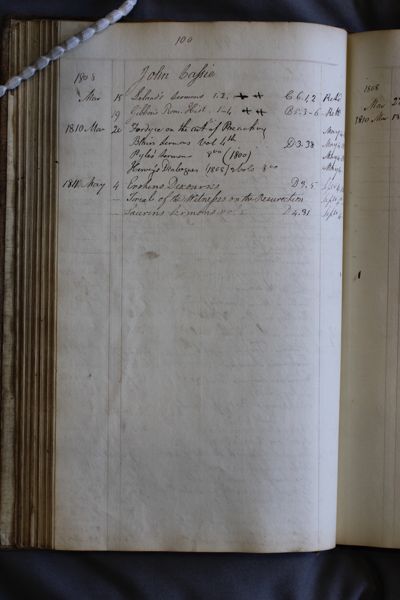 100
1808 John Cassie
Mar 18 Leland's Sermons 1.2. C.6.1.2 Retd
19 Gibbons Rom: Hist. 1-4 B5.3-6 Retd
1810 Mar 20 Fordyce on the art of Preaching May
Blair Sermons Vol 4th D3.38 May
Ogles Sermons 8vo (1800)
Hervey's Dialogues (1805) 2 vols 8vo
1811 May 4 Erskines Discourses D9.5
Tryal of the Witnesses on the Resurrection Septr
Saurins Sermons D4.31 Septr
1808
Mar 27
1810 Mar